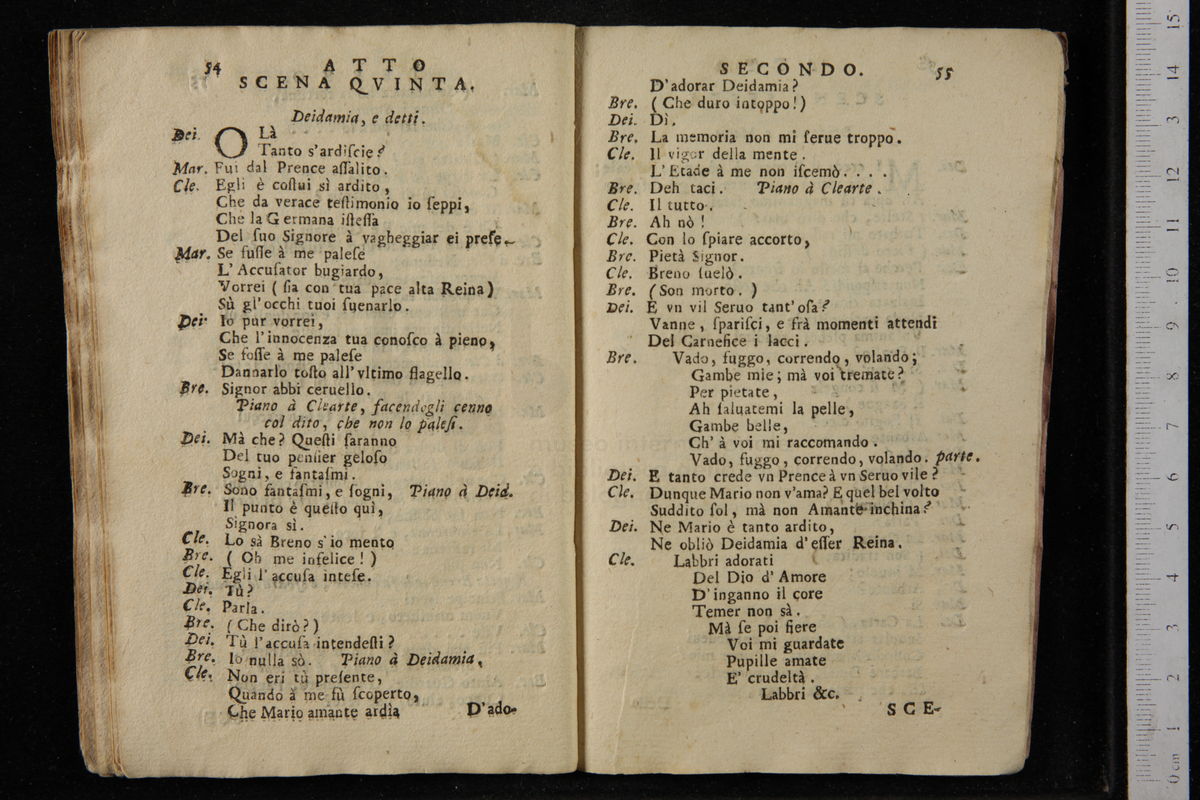 54 ATTO
SCENA QVINTA.
Deidamia, e detti.
Dei. OLà
Tanto s'ardiſcie?
Mar. Fui dal Prence aſſalito.
Cle. Egli è coſtui sì ardito,
Che da verace teſtimonio io ſeppi,
Che la Germana iſteſſa
Del ſuo Signore à vagheggiar ei preſe.
Mar. Se fuſſe à me paleſe
L'Accuſator bugiardo,
Vorrei (ſia con tua pace alta Reina)
Sù gl'occhi tuoi ſuenarlo.
Dei. Io pur vorrei,
Che l'innocenza tua conoſco à pieno,
Se foſſe à me paleſe
Dannarlo toſto all'vltimo flagello.
Bre. Signor abbi ceruello.
Piano à Clearte, facendogli cenno
col dito, che non lo paleſi.
Dei. Mà che? Queſti ſaranno
Del tuo penſier geloſo
Sogni, e fantaſmi.
Bre. Sono fantaſmi, e ſogni, Piano à Deid.
Il punto è queſto quì,
Signora sì.
Cle. Lo sà Breno s'io mento
Bre. (Oh me infelice!)
Cle. Egli l'accuſa inteſe.
Dei. Tù?
Cle. Parla.
Bre. (Che dirò?)
Dei. Tù l'accuſa intendeſti?
Bre. Io nulla sò. Piano à Deidamia.
Cle. Non eri tù preſente,
Quando à me fù ſcoperto,
Che Mario amante ardìa
D'ado-
SECONDO. 55
D'adorar Deidamia?
Bre. (Che duro intoppo!)
Dei. Dì.
Bre. La memoria non mi ſerue troppo.
Cle. Il vigor della mente.
L'Etade à me non iſcemò....
Bre. Deh taci. Piano à Clearte.
Cle. Il tutto.
Bre. Ah nò!
Cle. Con lo ſpiare accorto,
Bre. Pietà Signor.
Cle. Breno ſuelò.
Bre. (Son morto.)
Dei. E vn vil Seruo tant'oſa?
Vanne, ſpariſci, e frà momenti attendi
Del Carnefice i lacci.
Bre. Vado, fuggo, correndo, volando;
Gambe mie; mà voi tremate?
Per pietate,
Ah ſaluatemi la pelle,
Gambe belle,
Ch'à voi mi raccomando.
Vado, fuggo, correndo, volando. parte.
Dei. E tanto crede vn Prence à vn Seruo vile?
Cle. Dunque Mario non v'ama? E quel bel volto
Suddito ſol, mà non Amante inchina?
Dei. Ne Mario è tanto ardito,
Ne obliò Deidamia d'eſſer Reina.
Cle. Labbri adorati
Del Dio d'Amore
D'inganno il core
Temer non sà.
Mà ſe poi fiere
Voi mi guardate
Pupille amate
E' crudeltà.
Labbri &c.
SCE-